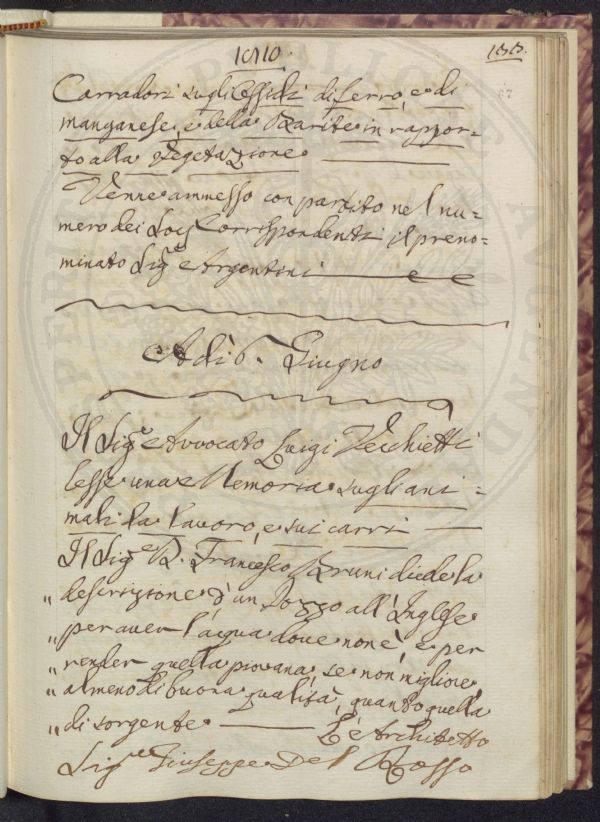 1810.
155.
67
Carradori sugli Ossidi di ferro, e di
manganese, e della Barite in rappor=
to alla Vegetazione
Venne ammesso con partito nel nu=
mero dei Socj Corrispondenti il preno=
minato Sig.e Argentini
Adì 6. Giugno
Il Sig.e Avvocato Luigi Vecchietti
lesse una Memoria sugli ani=
mali da lavoro, e sui carri
Il Sig.e D. Francesco Bruni diede la
„ descrizione d'un Pozzo all'Inglese
„ per aver l'acqua dove non è, e per
„ render quella piovana, se non migliore,
„ almeno di buona qualità, quanto quella
„ di sorgente L'Architetto
Sig.e Giuseppe Del Rosso